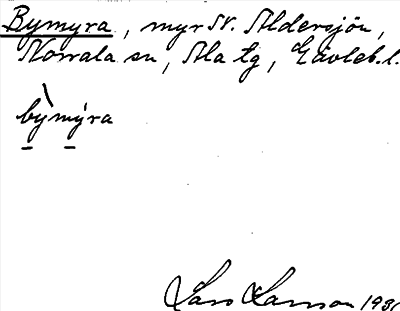 Bymyra, myr N. Aldersjön,
Norrala sn, Ala tg, Gävleb. l.
bymýra
Lars Larsson 1931